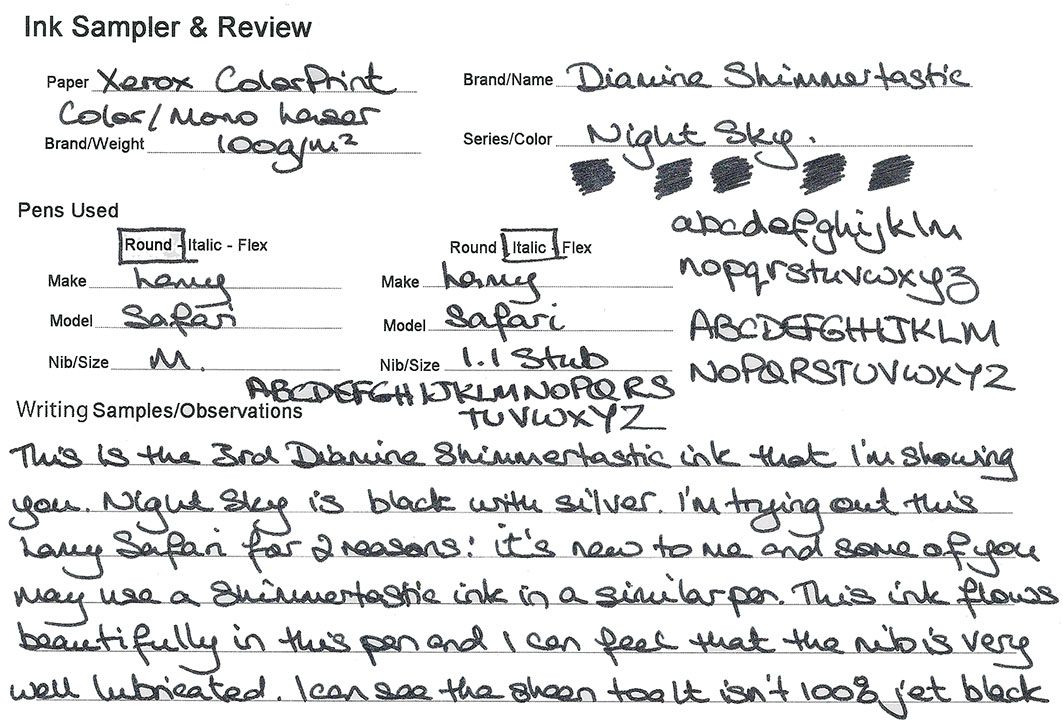 Ink Sampler & Review
Paper Xerox ColorPrint
Color/Mono Laser
Brand/Weight 100g/m²
Brand/Name Diamine Shimmertastic
Series/Color Night Sky.
Pens Used
Round - Italic - Flex
Make Lamy
Model Safari
Nib/Size M.
Round - Italic - Flex
Make Lamy
Model Safari
Nib/Size 1.1 Stub
abcdefghijklm
nopqrstuvwxyz
ABCDEFGHIJKLM
NOPQRSTUVWXYZ
ABCDEFGHIJKLMNOPQRS
TUVWXYZ
Writing Samples/Observations
This is the 3rd Diamine Shimmertastic ink that I'm showing
you. Night Sky is black with silver. I'm trying out this
Lamy Safari for 2 reasons: it's new to me and some of you
may use a Shimmertastic ink in a similar pen. This ink flows
beautifully in this pen and I can feel that the nib is very
well lubricated. I can see the sheen too. It isn't 100% jet black